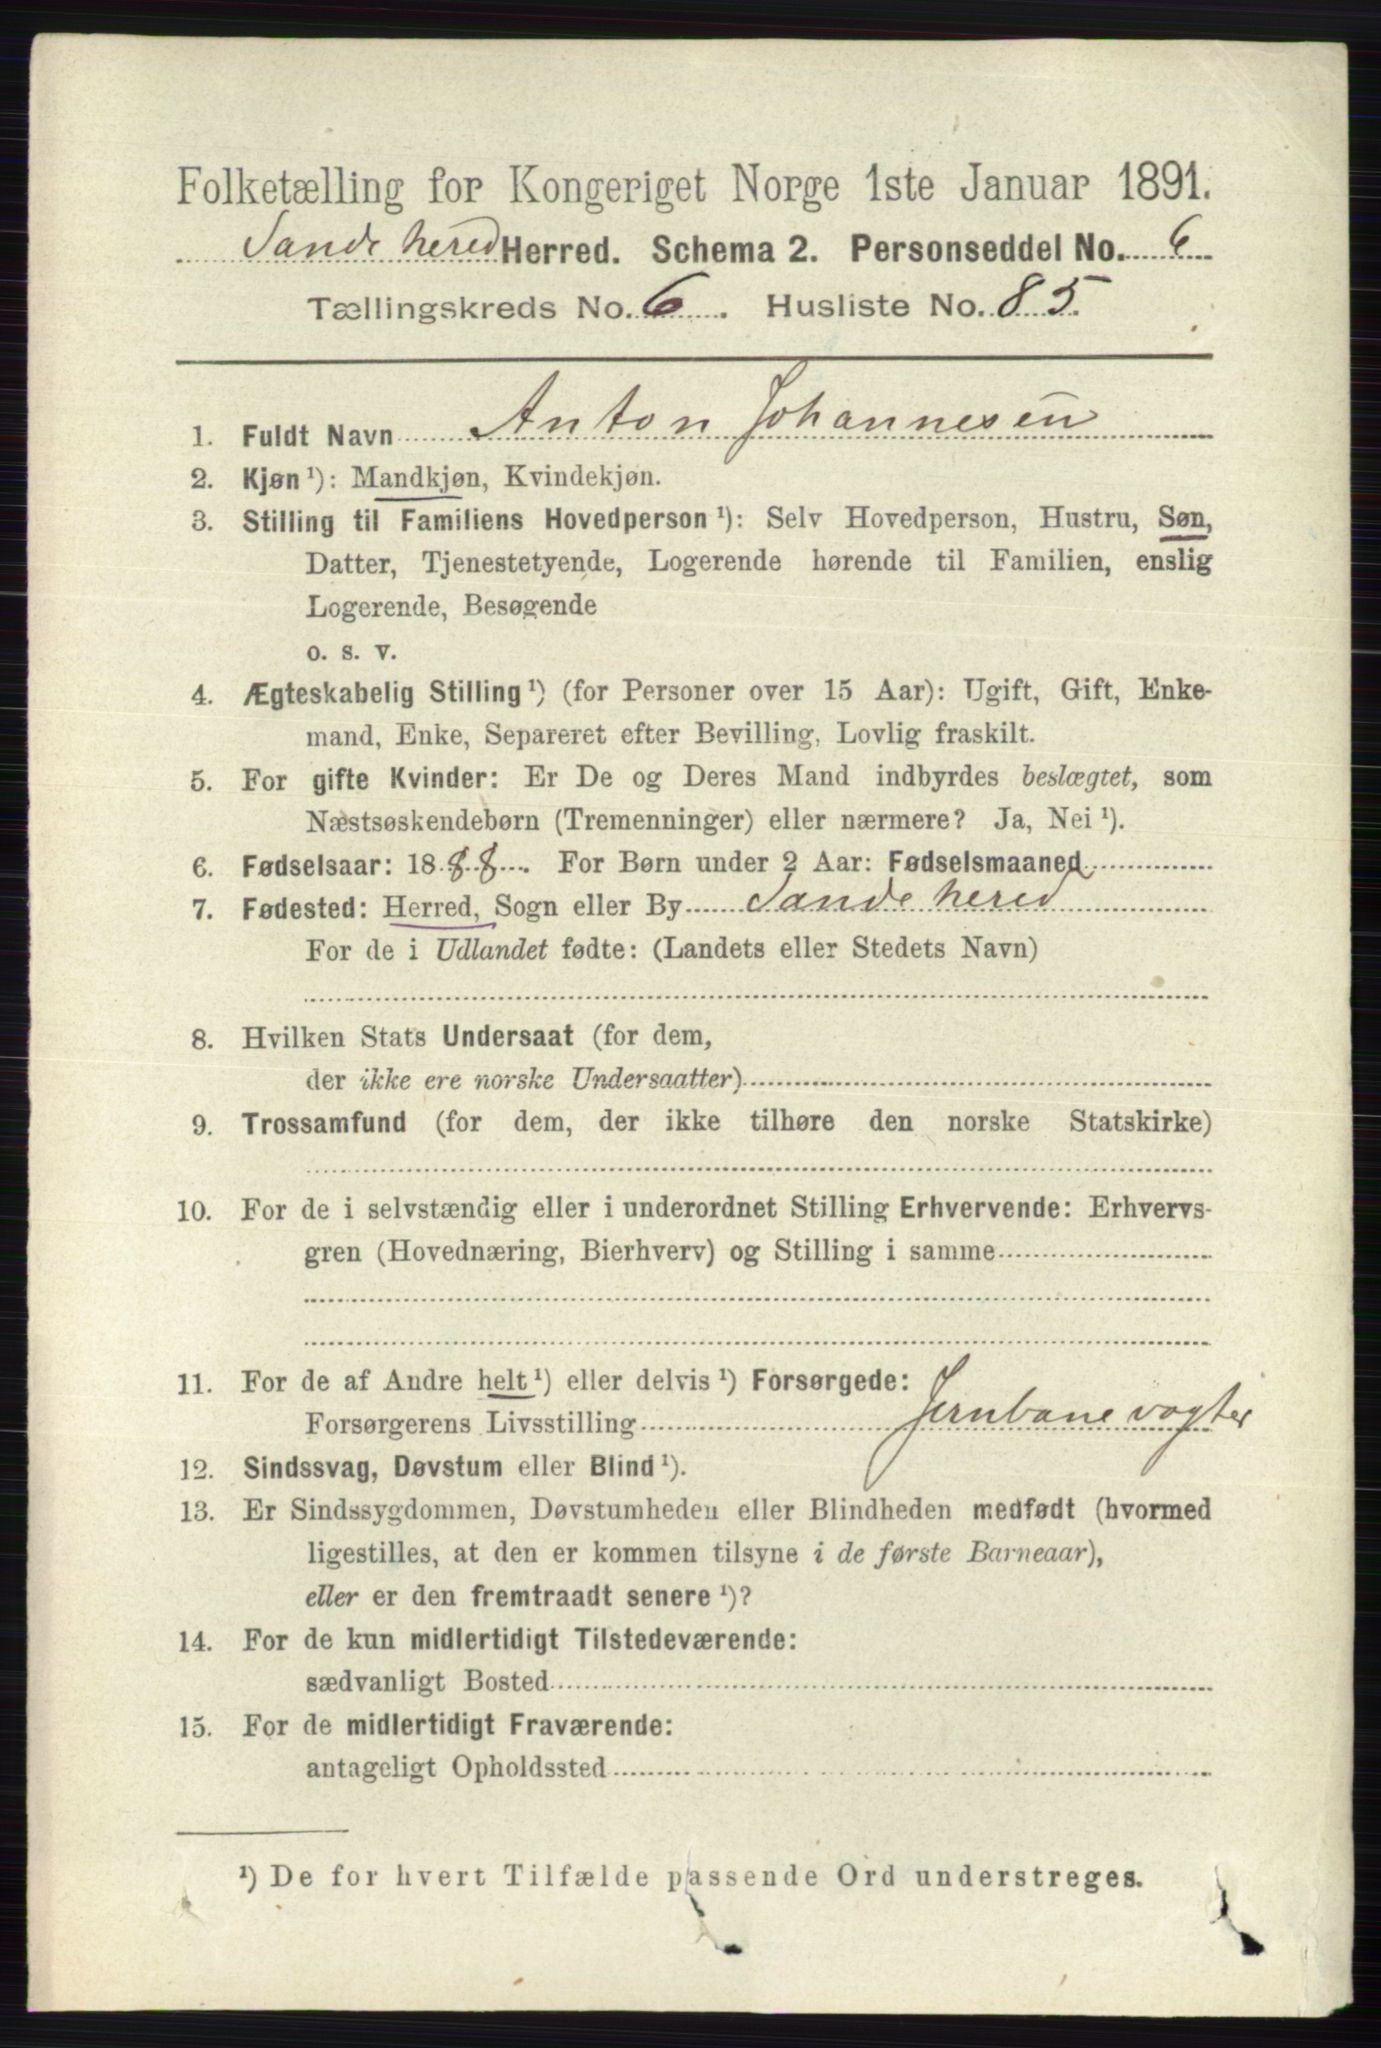 Folketælling for Kongeriget Norge 1ste Januar 1891.
Sandehered Herred. Schema 2. Personseddel No. 6
Tællingskreds No. 6. Husliste No. 85.
1. Fuldt Navn Anton Johannesen
2. Kjøn¹): Mandkjøn, Kvindekjøn.
3. Stilling til Familiens Hovedperson¹): Selv Hovedperson, Hustru, Søn,
Datter, Tjenestetyende, Logerende hørende til Familien, enslig
Logerende, Besøgende
o. s. v.
4. Ægteskabelig Stilling¹) (for Personer over 15 Aar): Ugift, Gift, Enke-
mand, Enke, Separeret efter Bevilling, Lovlig fraskilt.
5. For gifte Kvinder: Er De og Deres Mand indbyrdes beslægtet, som
Næstsøskendebørn (Tremenninger) eller nærmere? Ja, Nei¹).
6. Fødselsaar: 1888. For Børn under 2 Aar: Fødselsmaaned
7. Fødested: Herred, Sogn eller By Sandehered
For de i Udlandet fødte: (Landets eller Stedets Navn)
8. Hvilken Stats Undersaat (for dem,
der ikke ere norske Undersaatter)
9. Trossamfund (for dem, der ikke tilhøre den norske Statskirke)
10. For de i selvstændig eller i underordnet Stilling Erhvervende: Erhvervs-
gren (Hovednæring, Bierhverv) og Stilling i samme
11. For de af Andre helt¹) eller delvis¹) Forsørgede:
Forsørgerens Livsstilling Jernbanevogter
12. Sindssvag, Døvstum eller Blind¹).
13. Er Sindssygdommen, Døvstumheden eller Blindheden medfødt (hvormed
ligestilles, at den er kommen tilsyne i de første Barneaar),
eller er den fremtraadt senere¹)?
14. For de kun midlertidigt Tilstedeværende:
sædvanligt Bosted
15. For de midlertidigt Fraværende:
antageligt Opholdssted
¹) De for hvert Tilfælde passende Ord understreges.